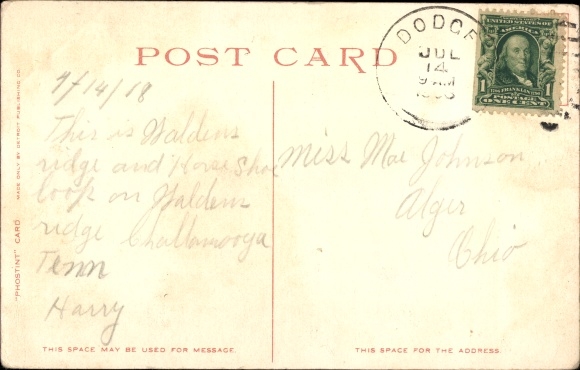 POST CARD
DODGE
JUL
14
9 AM
UNITED STATES OF
AMERICA
1 1
FRANKLIN
POSTAGE
ONE CENT
7/14/08
This is Waldens
ridge and Horse Shoe
loop on Waldens
ridge Challanooga
Tenn
Harry
Miss Mae Johnson
Alger
Ohio
"PHOSTINT" CARD
MADE ONLY BY DETROIT PUBLISHING CO.
THIS SPACE MAY BE USED FOR MESSAGE.
THIS SPACE FOR THE ADDRESS.